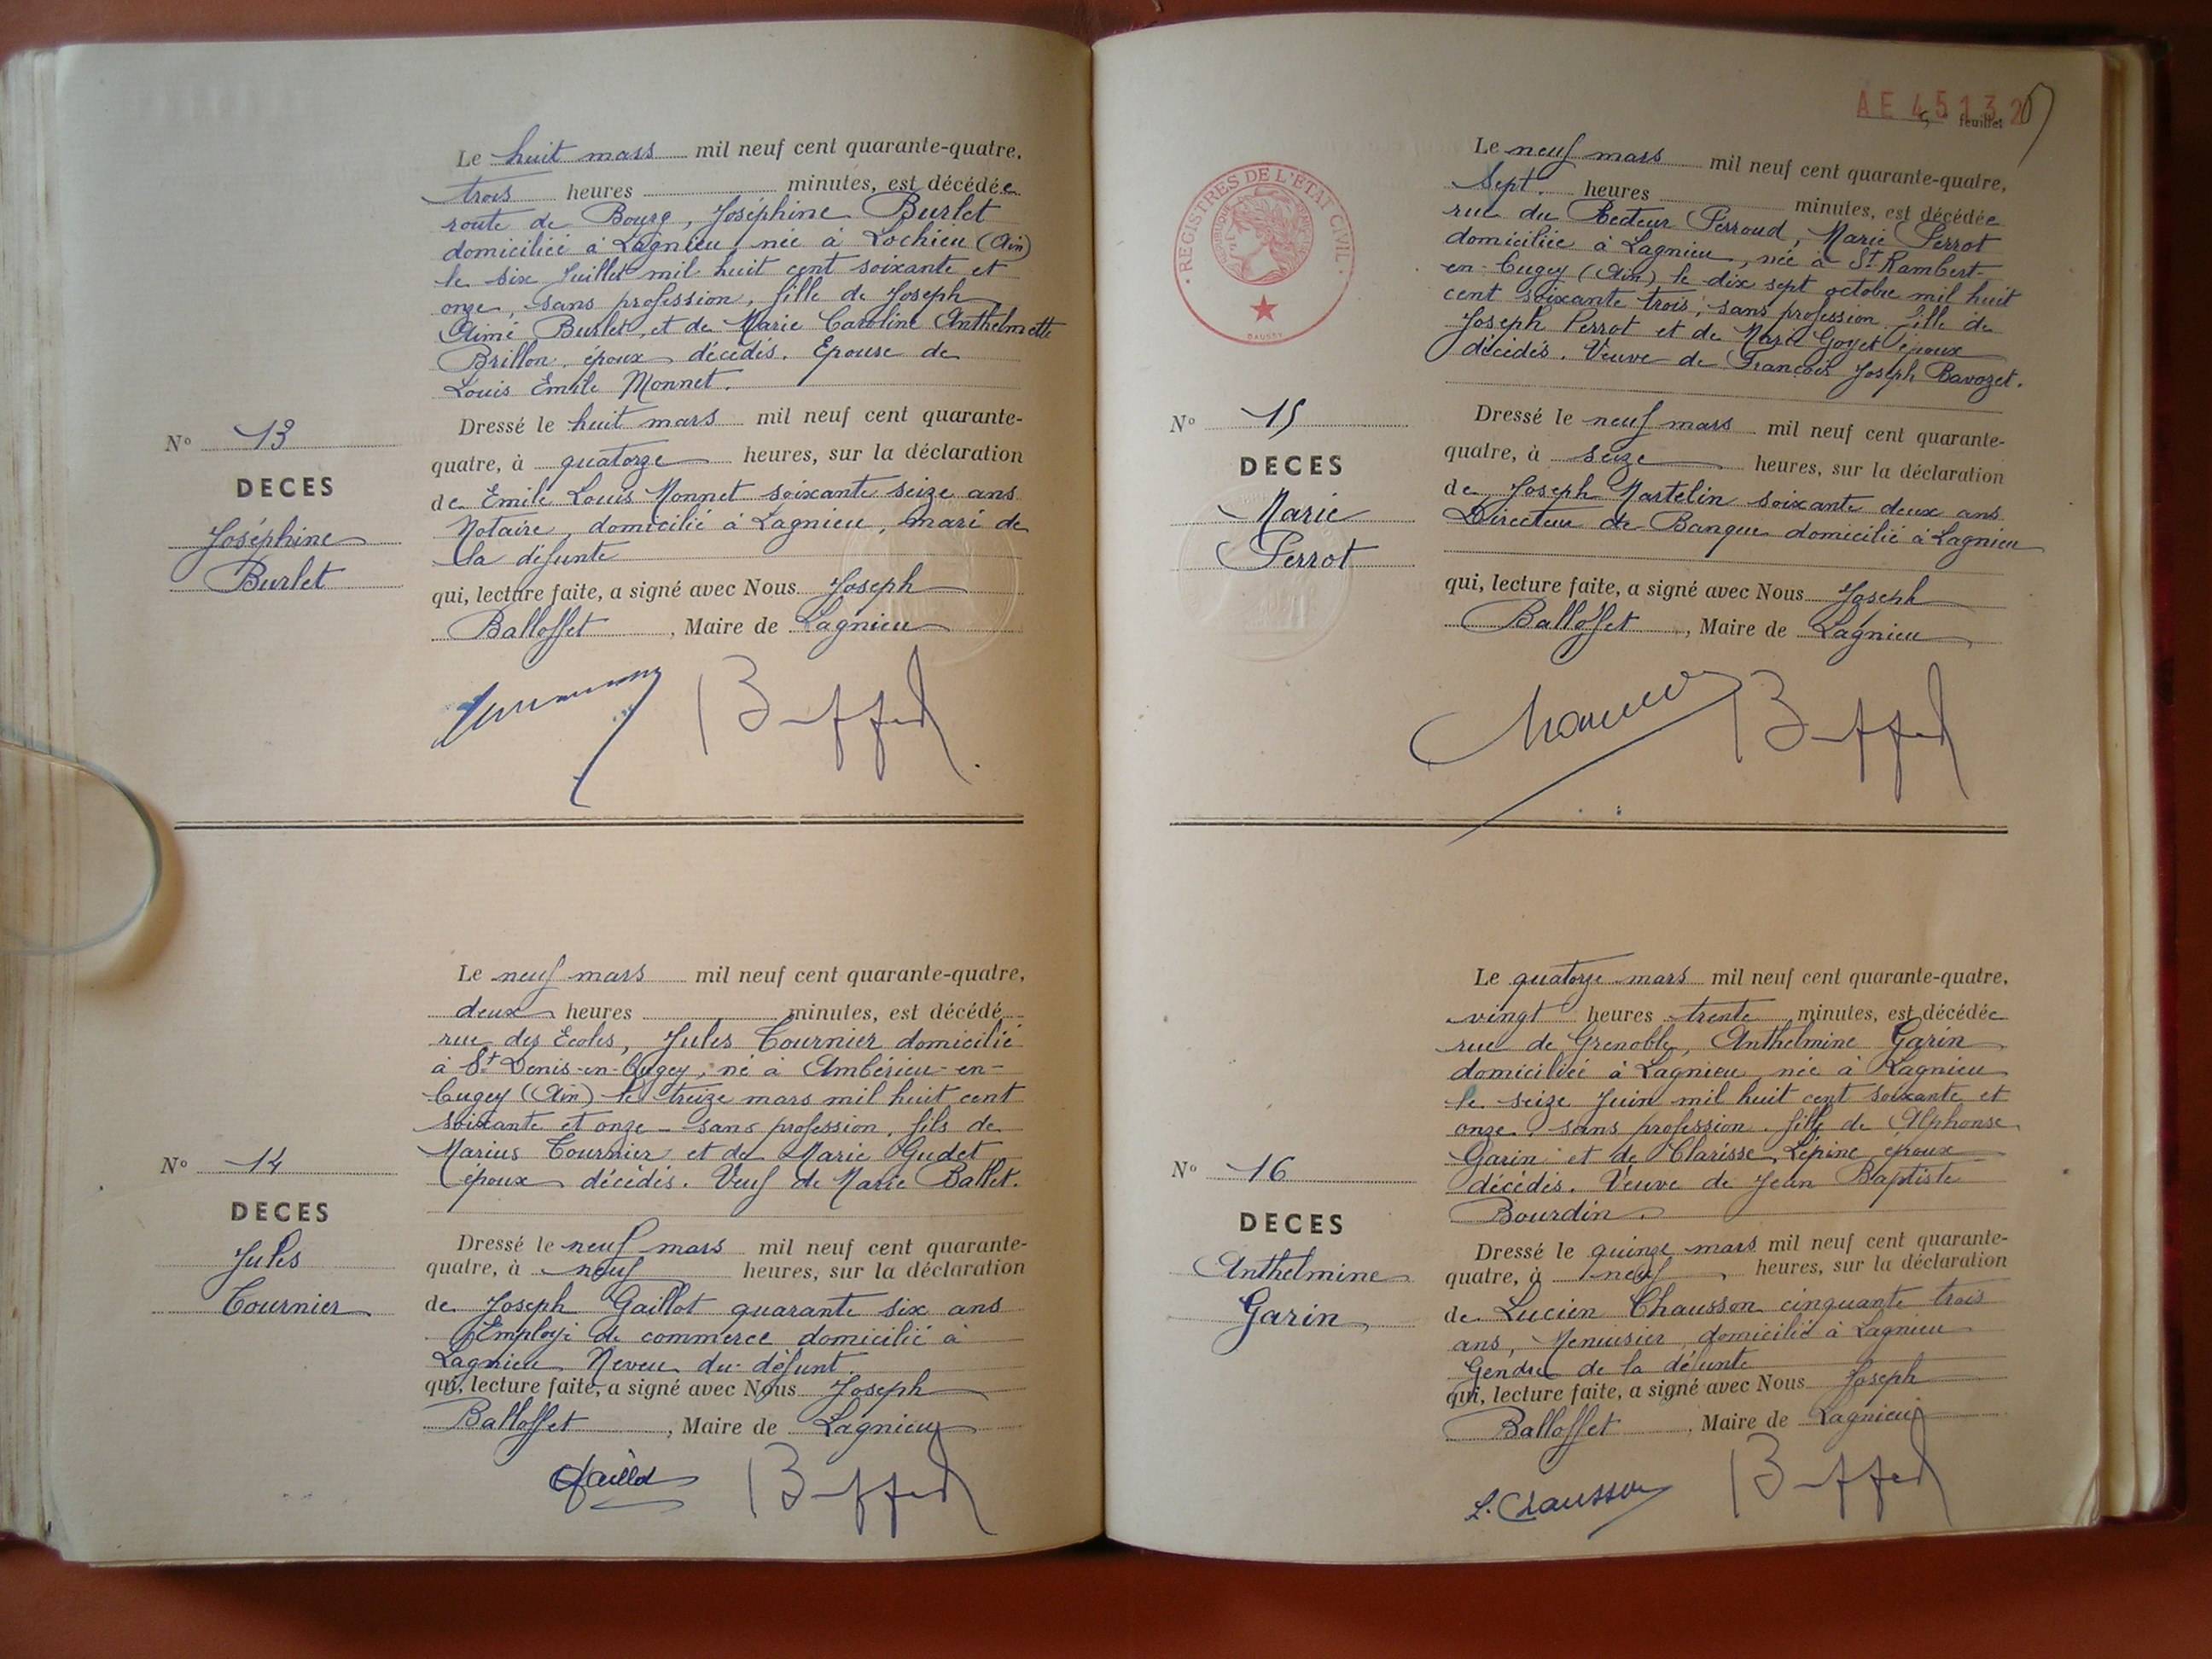 Le huit mars mil neuf cent quarante-quatre,
trois heures minutes, est décédée
route de Bourg, Joséphine Burlet
domiciliée à Lagnieu, née à Lochieu (Ain)
le six Juillet mil huit cent soixante et
onze, sans profession, fille de Joseph
Aimé Burlet, et de Marie Caroline Anthelmette
Brillon, époux décédés. Epouse de
Louis Emile Monnet.
Nº 13
DECES
Joséphine
Burlet
Dressé le huit mars mil neuf cent quarante-
quatre, à quatorze heures, sur la déclaration
de Emile Louis Monnet soixante seize ans
Notaire, domicilié à Lagnieu, mari de
la défunte
qui, lecture faite, a signé avec Nous Joseph
Balloffet, Maire de Lagnieu
Le neuf mars mil neuf cent quarante-quatre,
deux heures minutes, est décédé
rue des Ecoles, Jules Tournier domicilié
à St Denis-en-Bugey, né à Ambérieu-en-
Bugey (Ain) le treize mars mil huit cent
soixante et onze - sans profession, fils de
Marius Tournier et de Marie Gudet
époux décédés. Veuf de Marie Ballet.
Nº 14
DECES
Jules
Tournier
Dressé le neuf mars mil neuf cent quarante-
quatre, à neuf heures, sur la déclaration
de Joseph Gaillot quarante six ans
Employé de commerce domicilié à
Lagnieu Neveu du défunt.
qui, lecture faite, a signé avec Nous Joseph
Balloffet, Maire de Lagnieu
AE 45132
5 feuillet
REGISTRES DE L'ETAT CIVIL
Le neuf mars mil neuf cent quarante-quatre,
Sept. heures minutes, est décédée
rue du Recteur Perroud, Marie Perrot
domiciliée à Lagnieu, née à St Rambert-
en-Bugey (Ain) le dix sept octobre mil huit
cent soixante trois, sans profession, fille de
Joseph Perrot et de Marie Goyet époux
décédés. Veuve de François Joseph Bavozet.
Nº 15
DECES
Marie
Perrot
Dressé le neuf mars mil neuf cent quarante-
quatre, à seize heures, sur la déclaration
de Joseph Martelin soixante deux ans
Directeur de Banque domicilié à Lagnieu
qui, lecture faite, a signé avec Nous Joseph
Balloffet, Maire de Lagnieu
Le quatorze mars mil neuf cent quarante-quatre,
vingt heures trente minutes, est décédée
rue de Grenoble, Anthelmine Garin
domiciliée à Lagnieu née à Lagnieu
le seize Juin mil huit cent soixante et
onze, sans profession, fille de Alphonse
Garin et de Clarisse Lépine époux
décédés. Veuve de Jean Baptiste
Bourdin.
Nº 16
DECES
Anthelmine
Garin
Dressé le quinze mars mil neuf cent quarante-
quatre, à neuf heures, sur la déclaration
de Lucien Chausson cinquante trois
ans, Menuisier, domicilié à Lagnieu
Gendre de la défunte
qui, lecture faite, a signé avec Nous Joseph
Balloffet, Maire de Lagnieu
L. Chausson